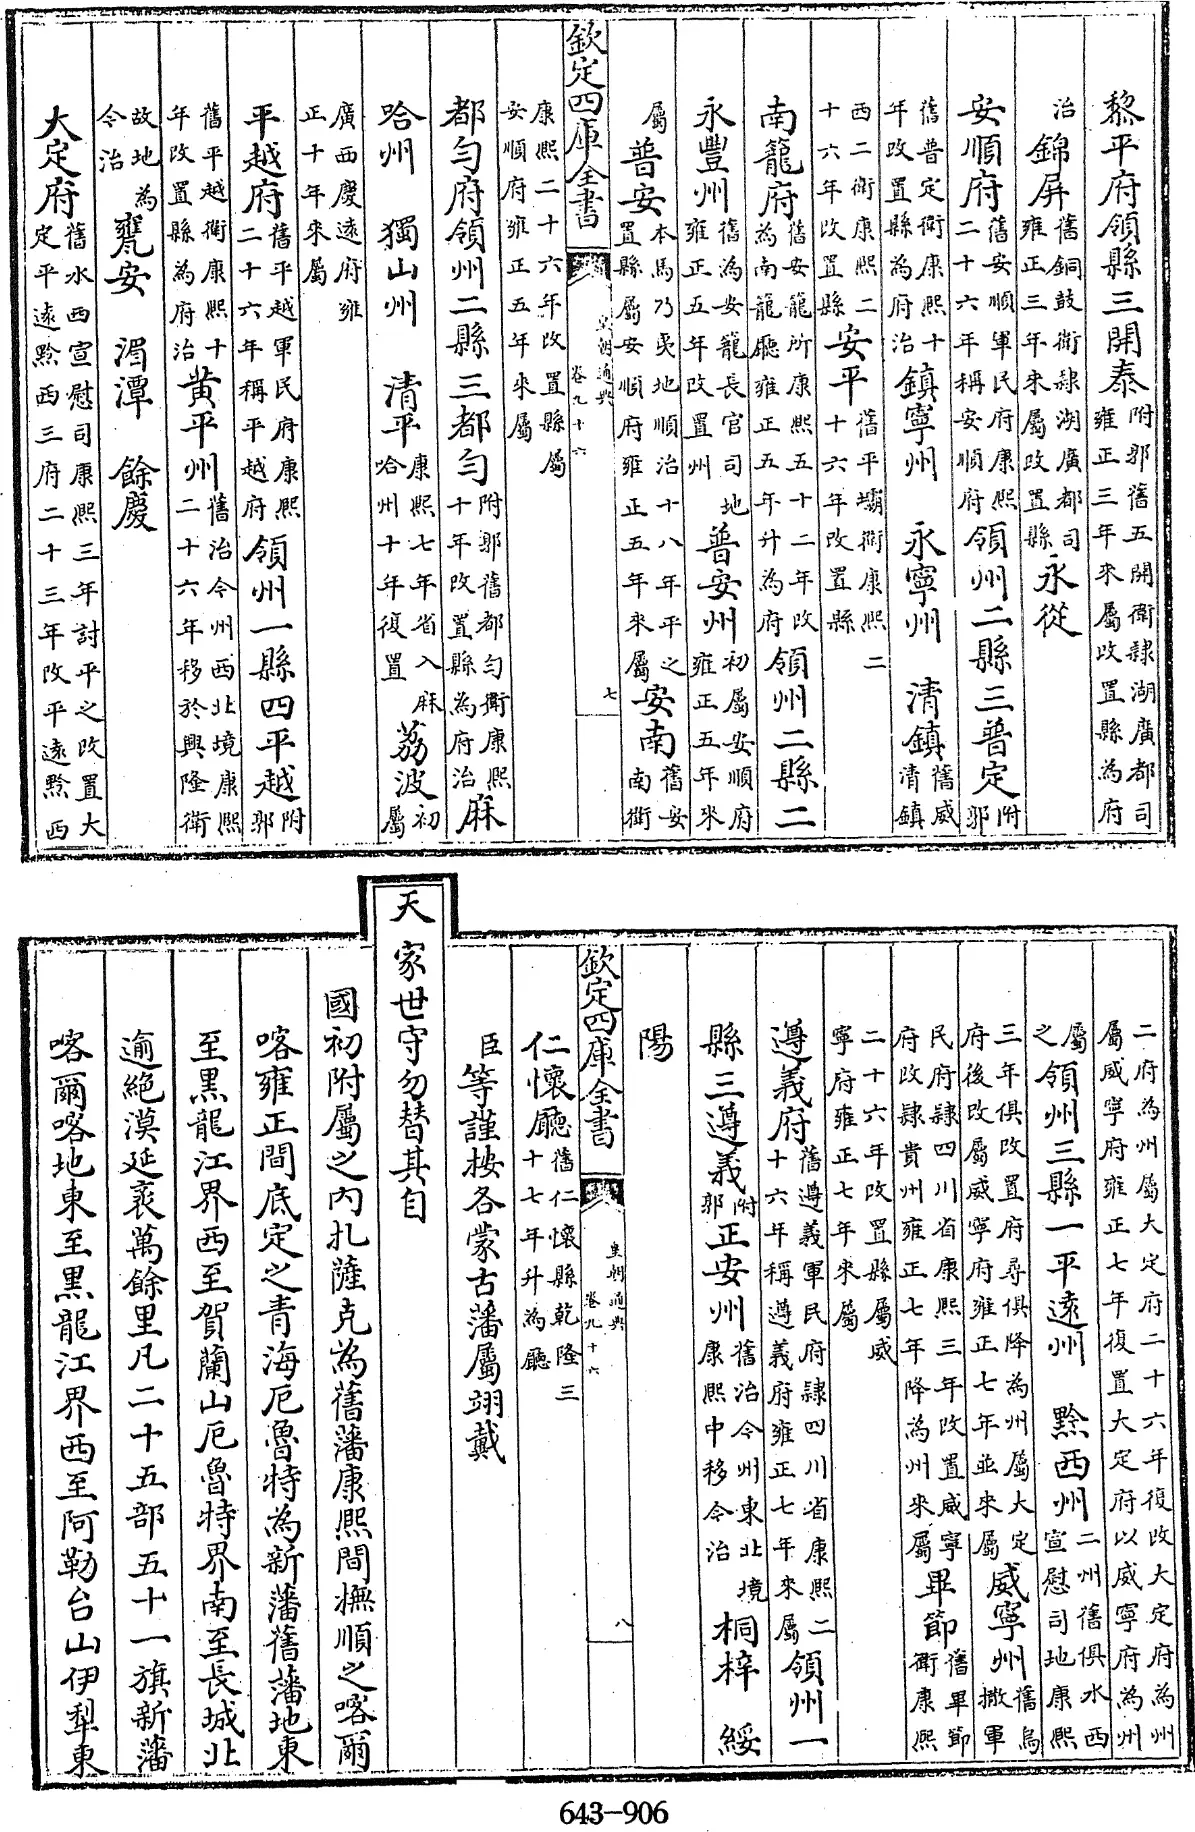 黎平府領縣三開泰附郭舊五開衛隸湖廣都司雍正三年來屬改置縣為府
治錦屏舊銅鼓衛隸湖廣都司雍正三年來屬改置縣永從
安順府舊安順軍民府康熙二十六年稱安順府領州二縣三普定附郭
舊普定衛康熙十年改置縣為府治鎮寧州 永寧州 清鎮舊威清鎮
西二衛康熙二十六年改置縣安平舊平壩衛康熙二十六年改置縣
南籠府舊安籠所康熙五十二年改為南籠廳雍正五年升為府領州二縣二
永豐州舊為安籠長官司地雍正五年改置州普安州初屬安順府雍正五年來
屬普安本馬乃夷地順治十八年平之置縣屬安順府雍正五年來屬安南舊安南衛
欽定四庫全書 皇朝通典 卷九十六 七
康熙二十六年改置縣屬安順府雍正五年來屬
都勻府領州二縣三都勻附郭舊都勻衛康熙十年改置縣為府治麻
哈州 獨山州 清平康熙七年省入麻哈州十年復置荔波初屬
廣西慶遠府雍正十年來屬
平越府舊平越軍民府康熙二十六年稱平越府領州一縣四平越附郭
舊平越衛康熙十年改置縣為府治黃平州舊治今州西北境康熙二十六年移於興隆衛
故地為今治甕安 湄潭 餘慶
大定府舊水西宣慰司康熙三年討平之改置大定平遠黔西三府二十三年改平遠黔西
二府為州屬大定府二十六年復改大定府為州屬威寧府雍正七年復置大定府以威寧府為州
屬之領州三縣一平遠州 黔西州二州舊俱水西宣慰司地康熙
三年俱改置府尋俱降為州屬大定府後改屬威寧府雍正七年並來屬威寧州舊烏撒軍
民府隸四川省康熙三年改置威寧府改隸貴州雍正七年降為州來屬畢節舊畢節衛康熙
二十六年改置縣屬威寧府雍正七年來屬
遵義府舊遵義軍民府隸四川省康熙二十六年稱遵義府雍正七年來屬領州一
縣三遵義附郭正安州舊治今州東北境康熙中移今治桐梓 綏
陽
欽定四庫全書 皇朝通典 卷九十六 八
仁懷廳舊仁懷縣乾隆三十七年升為廳
臣等謹按各蒙古藩屬翊戴
天家世守勿替其自
國初附屬之內扎薩克為舊藩康熙間撫順之喀爾
喀雍正間底定之青海厄魯特為新藩舊藩地東
至黑龍江界西至賀蘭山厄魯特界南至長城北
逾絕漠延袤萬餘里凡二十五部五十一旗新藩
喀爾喀地東至黑龍江界西至阿勒台山伊犁東
643-906